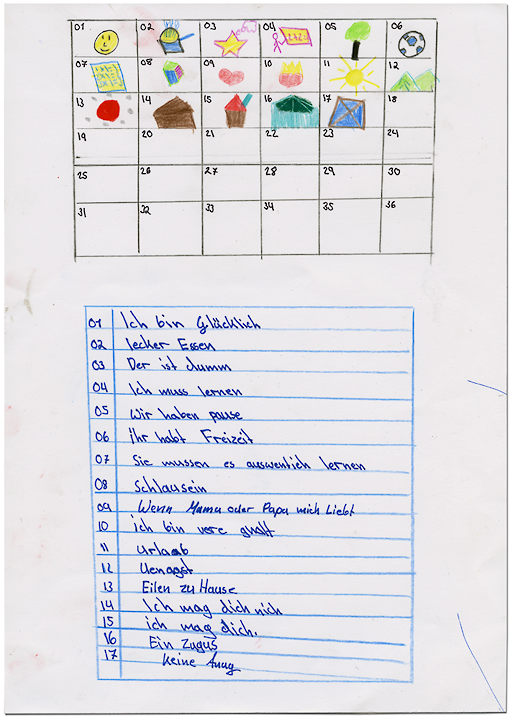 01 02 03 04 05 06
07 08 09 10 11 12
13 14 15 16 17 18
19 20 21 22 23 24
25 26 27 28 29 30
31 32 33 34 35 36
01 Ich bin Glücklich
02 lecker Essen
03 Der ist dumm
04 Ich muss lernen
05 Wir haben pause
06 ihr habt Freizeit
07 Sie mussen es auswentich lernen
08 Schlausein
09 Wenn Mama oder Papa mich Liebt
10 ich bin
11 urlaub
12
13 Eilen zu Hause
14 Ich mag dich nich
15 ich mag dich.
16 Ein Zugus
17 keine